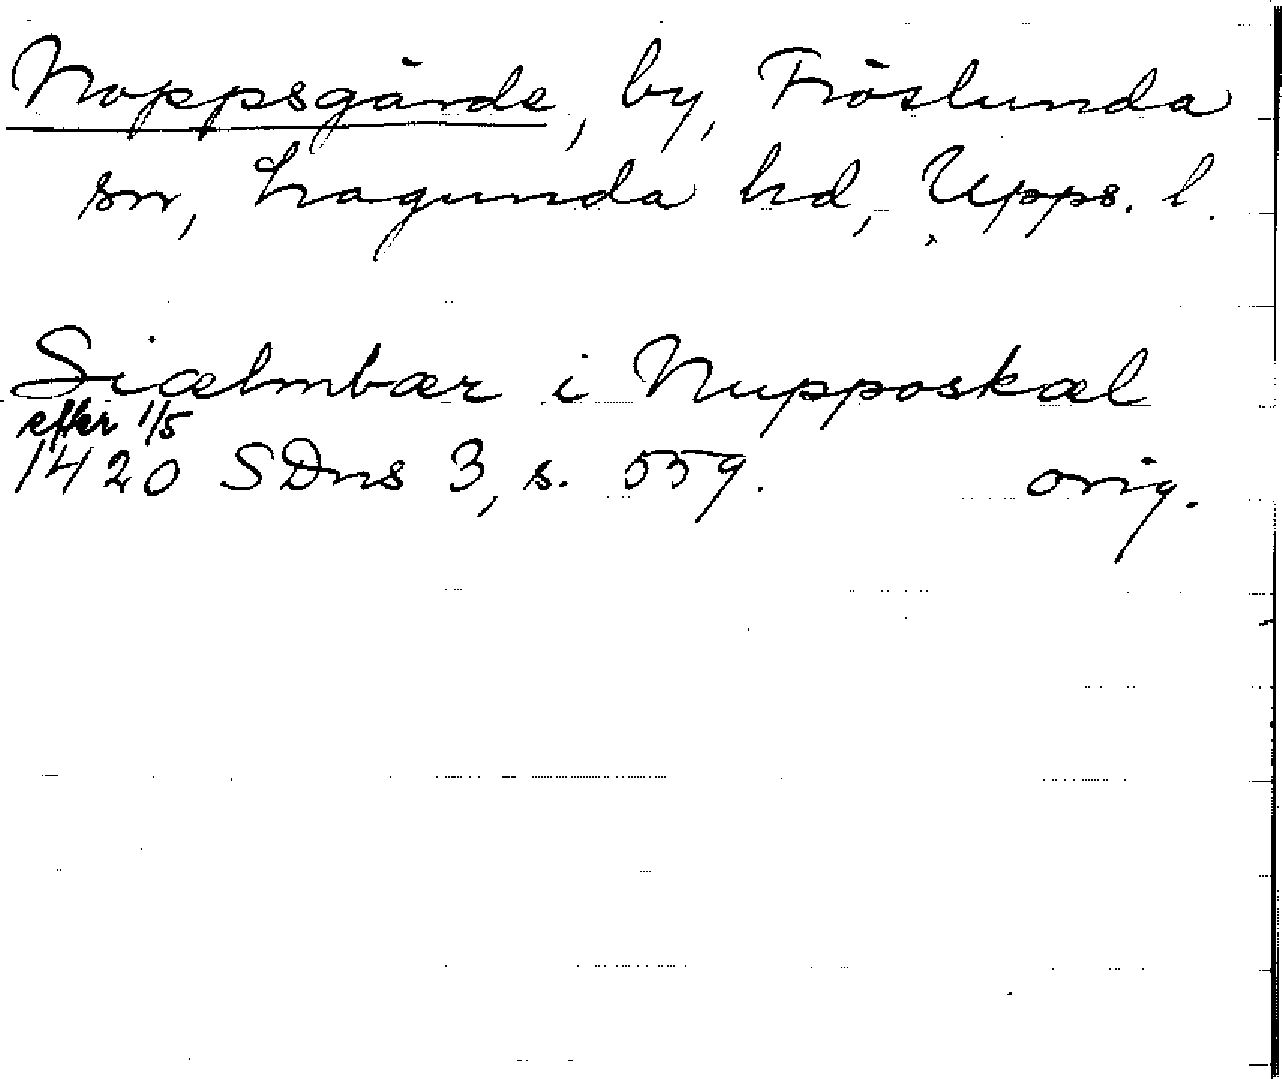 Noppsgärde, by, Fröslunda
sn, Lagunda hd, Upps. l.
Siælmbær i Nupposkæl
efter 1/5
1420 SDns 3, s. 559. orig.